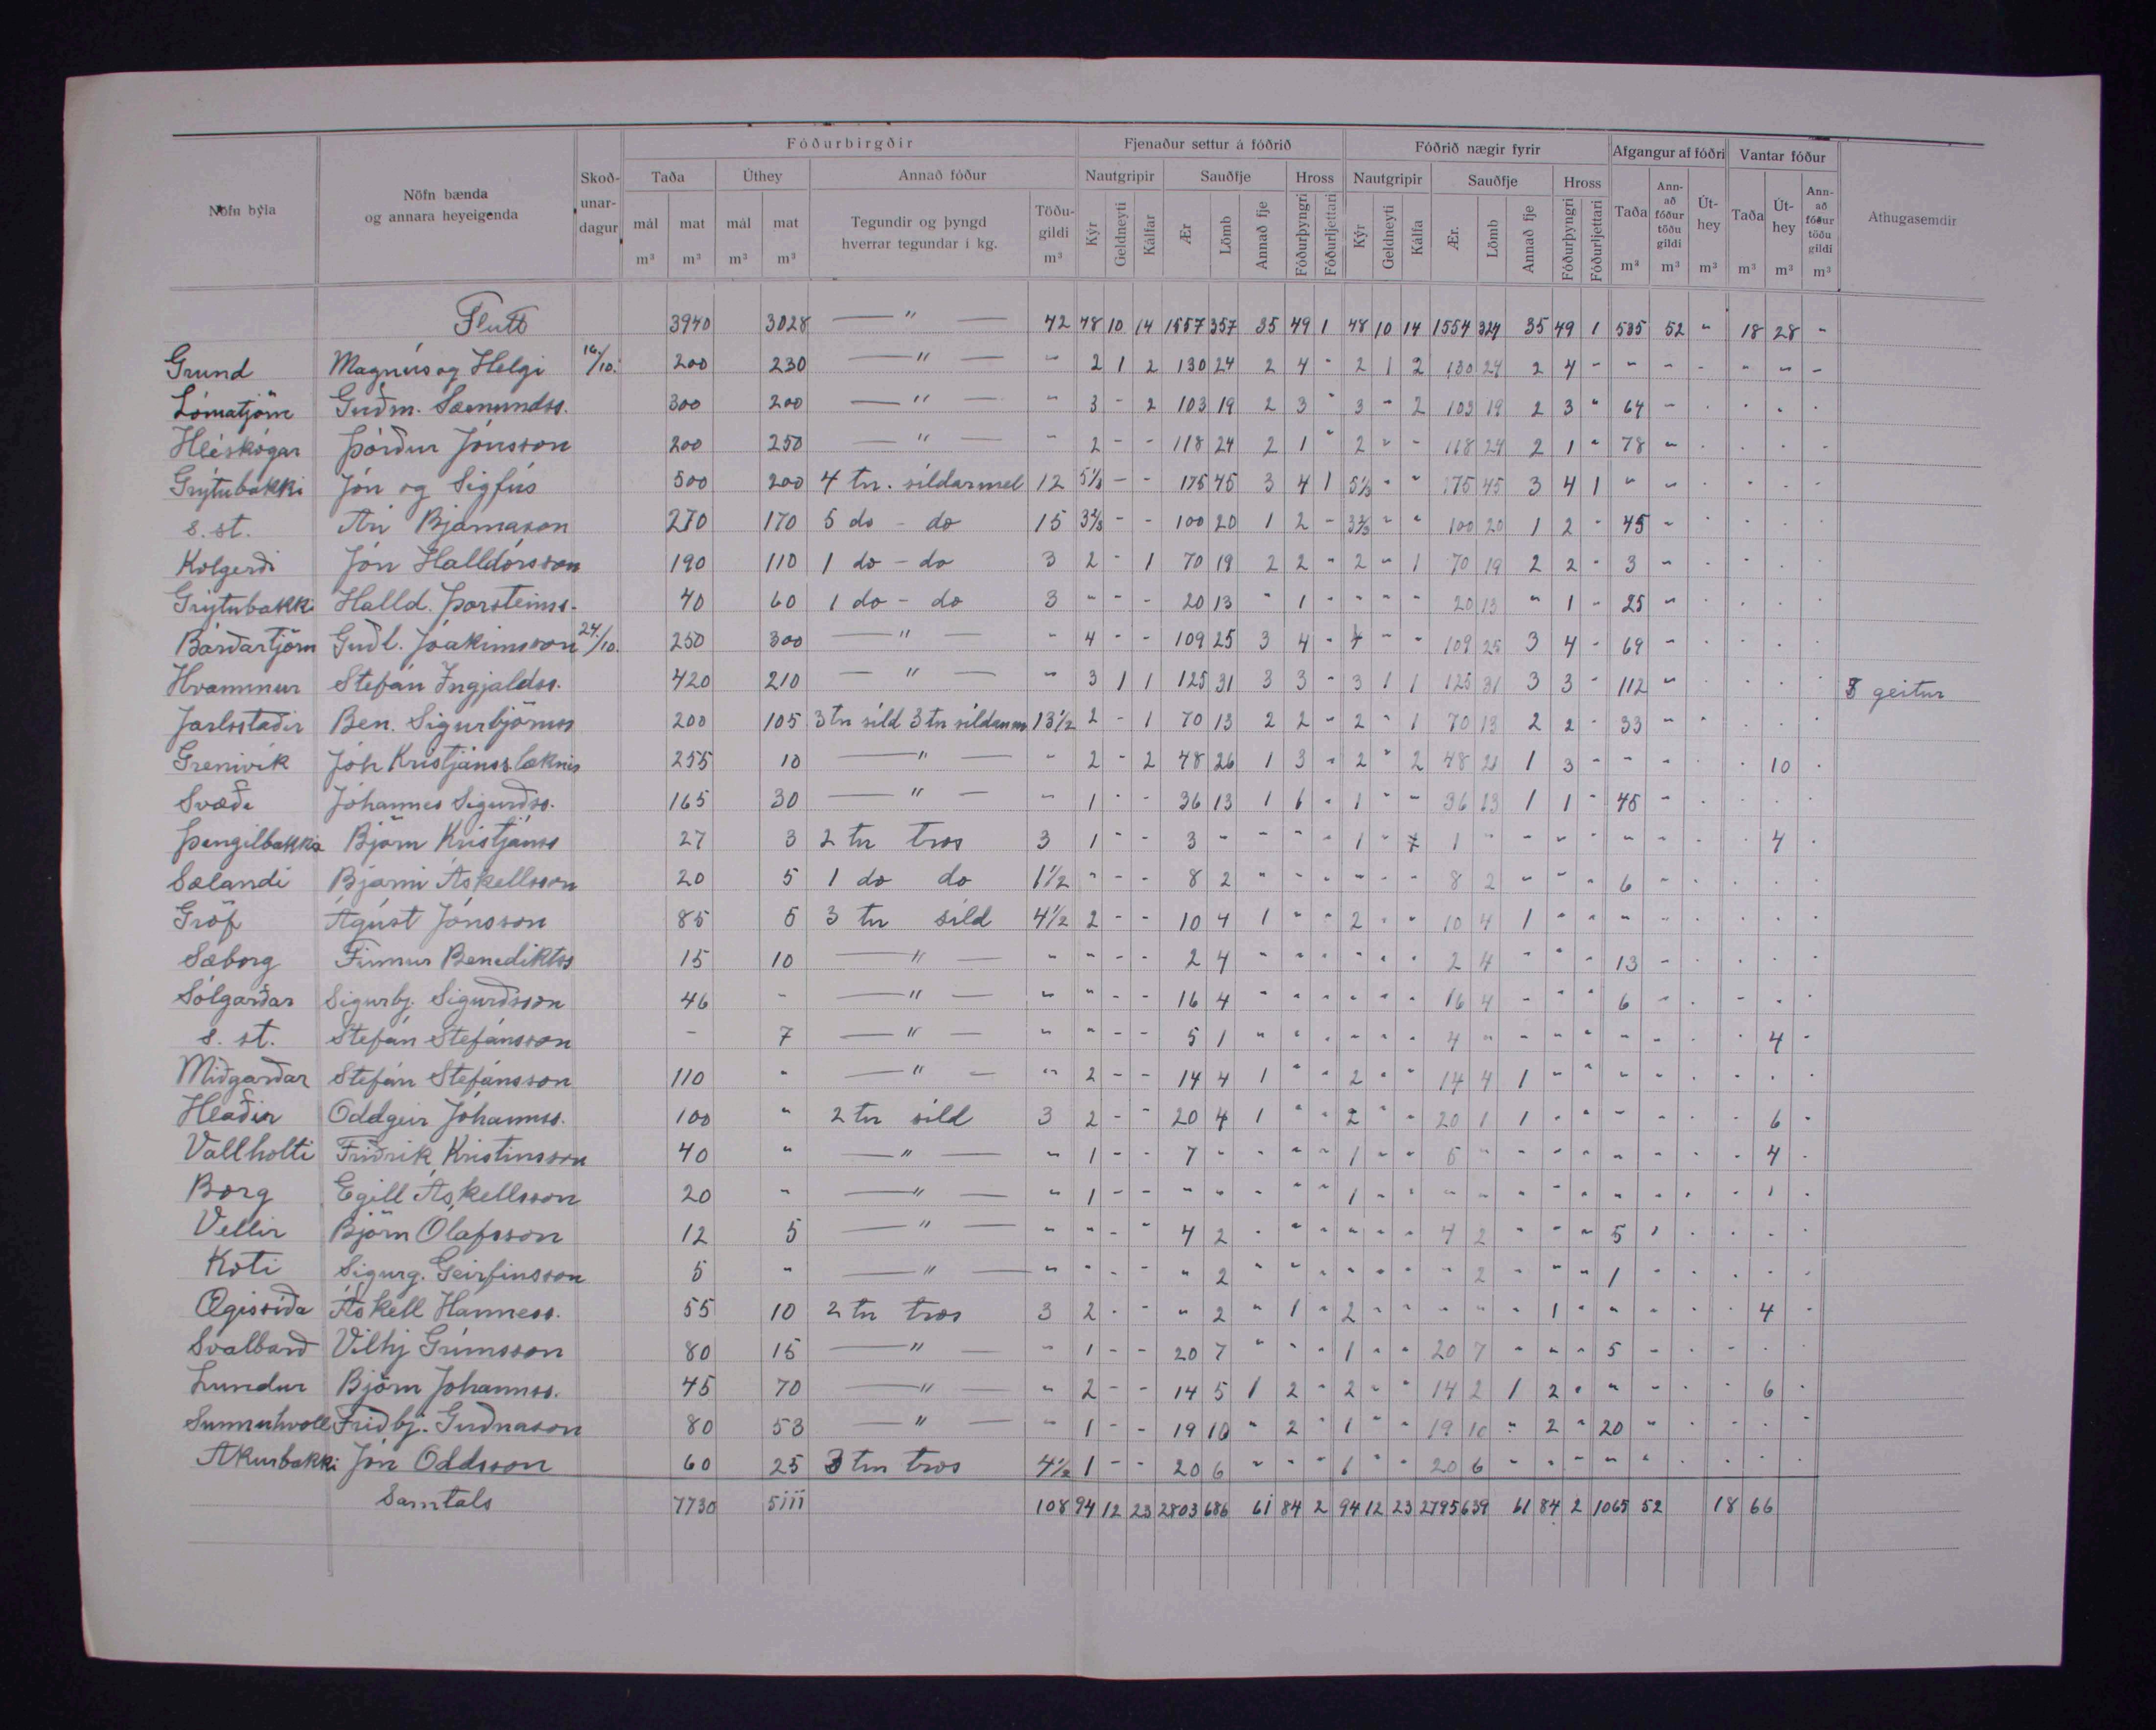 Nöfn býla | Nöfn bænda og annara heyeigenda | Skoðunardagur | Fóðurbirgðir | Fjenaður settur á fóðrið | Fóðrið nægir fyrir | Afgangur af fóðri | Vantar fóður | Athugasemdir
Taða | Úthey | Annað fóður | Nautgripir | Sauðfje | Hross | Nautgripir | Sauðfje | Hross | Taða | Annað fóður töðu gildi | Úthey | Taða | Úthey | Annað fóður töðu gildi
mál m³ | mat m³ | mál m³ | mat m³ | Tegundir og þyngd hverrar tegundar í kg. | Töðugildi m³ | Kýr | Geldneyti | Kálfar | Ær | Lömb | Annað fje | Fóðurþyngri | Fóðurljettari | Kýr | Geldneyti | Kálfa | Ær. | Lömb | Annað fje | Fóðurþyngri | Fóðurljettari | m³ | m³ | m³ | m³ | m³ | m³
Flutt 3940 3028 — " — 42 48 10 14 1557 357 35 49 1 48 10 14 1554 324 35 49 1 535 52 " 18 28 "
Grund Magnús og Helgi 16./10. 200 230 — " — " 2 1 2 130 24 2 4 - 2 1 2 130 24 2 4 - - - - - - -
Lómatjörn Guðm. Sæmundss. 300 200 — " — " 3 - 2 103 19 2 3 " 3 " 2 103 19 2 3 " 64 - . . . .
Hléskógar Þórður Jónsson 200 250 — " — " 2 - - 118 24 2 1 " 2 " - 118 24 2 1 " 78 - . . . .
Grýtubakki Jón og Sigfús 500 200 4 tn. síldarmel 12 5⅓ - - 175 45 3 4 1 5⅓ " " 175 45 3 4 1 " - . . . .
s. st. Ari Bjarnason 270 170 5 do - do 15 3⅔ - - 100 20 1 2 - 3⅔ " " 100 20 1 2 - 45 - . . . .
Kolgerði Jón Halldórsson 190 110 1 do - do 3 2 - 1 70 19 2 2 - 2 - 1 70 19 2 2 - 3 - . . . .
Grýtubakki Halld. Þorsteinss. 40 60 1 do - do 3 " - - 20 13 " 1 - - - - 20 13 " 1 - 25 - . . . .
Bárðartjörn Guðl. Jóakimsson 24./10. 250 300 — " — " 4 - - 109 25 3 4 - 4 - - 109 25 3 4 - 69 - . . . .
Hvammur Stefán Ingjaldss. 420 210 — " — " 3 1 1 125 31 3 3 - 3 1 1 125 31 3 3 - 112 - . . . . 8 geitur
Jarlsstaðir Ben. Sigurbjörnss 200 105 3 tn síld 3 tn síldarm 13½ 2 - 1 70 13 2 2 - 2 " 1 70 13 2 2 - 33 - . . . .
Grenivík Jóh Kristjánss. læknir 255 10 — " — " 2 - 2 48 26 1 3 - 2 " 2 48 21 1 3 - - - . . 10 .
Svæði Jóhannes Sigurðss. 165 30 — " — " 1 - - 36 13 1 1 - 1 " - 36 13 1 1 - 45 - . . . .
Þengilbakka Björn Kristjánss 27 3 2 tn tros 3 1 - - 3 - - - - 1 - 1 - - - - - - . . 4 .
Sælandi Bjarni Áskellsson 20 5 1 do do 1½ " - - 8 2 " - - - - - 8 2 - - - 6 - . . . .
Gröf Ágúst Jónsson 85 5 3 tn síld 4½ 2 - - 10 4 1 " " 2 " " 10 4 1 " " - - . . . .
Sæborg Finnur Benediktss 15 10 — " — " " - - 2 4 " " " " " " 2 4 " " " 13 - . . . .
Sólgarðar Sigurbj. Sigurðsson 46 - — " — " " - - 16 4 " " " " " " 16 4 - " " 6 - . - . .
s. st. Stefán Stefánsson - 7 — " — " " - - 5 1 " " . - " " 4 " - - " - - . . 4 -
Miðgarðar Stefán Stefánsson 110 " — " — " 2 - - 14 4 1 " " 2 " " 14 4 1 - " - - . . . .
Hlaðir Oddgeir Jóhannss. 100 " 2 tn síld 3 2 - - 20 4 1 " " 2 " " 20 1 1 " " - - . . 6 -
Vallholti Friðrik Kristinsson 40 " — " — " 1 - - 7 - - " " 1 - - 5 " - - " - - . . 4 .
Borg Egill Áskellsson 20 - — " — " 1 - - - - - " " 1 - - - - - - - - - . . . .
Vellir Björn Ólafsson 12 5 — " — " " - - 4 2 . " " " " " 4 2 " " " 5 . . . . .
Koti Sigurg. Geirfinsson 5 " — " — " " - - " 2 " " " " " " " 2 " " " 1 - . . . .
Ægissíða Áskell Hanness. 55 10 2 tn tros 3 2 - - " 2 " 1 " 2 - - - - - 1 " - - . . 4 -
Svalbarð Vilhj Grímsson 80 15 — " — " 1 - - 20 7 " " " 1 " " 20 7 " " " 5 - . . . .
Lundur Björn Jóhannss. 45 70 — " — " 2 - - 14 5 1 2 - 2 - " 14 2 1 2 " " - . . 6 .
Sunnuhvoll Friðbj. Guðnason 80 53 — " — " 1 - - 19 10 " 2 " 1 " " 19 10 " 2 " 20 " . . . .
Akurbakki Jón Oddsson 60 25 3 tn tros 4½ 1 - - 20 6 " " " 1 " " 20 6 - - - - - . . . .
Samtals 7730 5111 108 94 12 23 2803 686 61 84 2 94 12 23 2795 639 61 84 2 1065 52 18 66